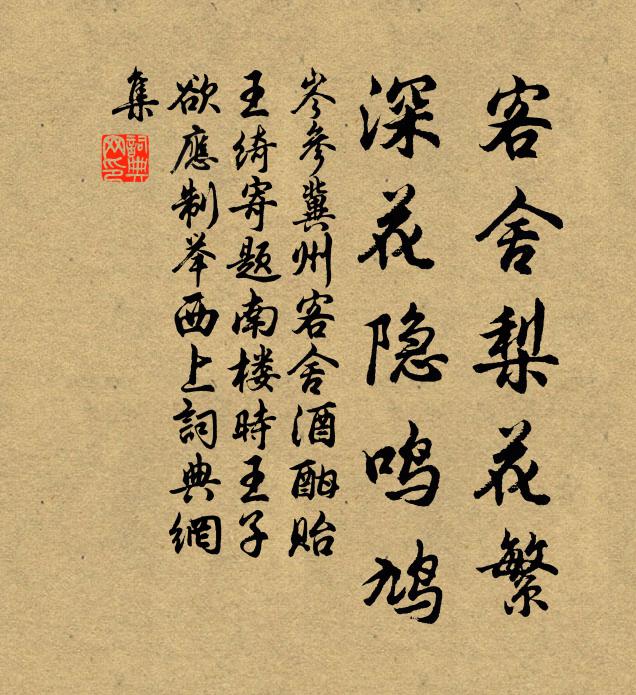 客舍梨花繁
深花隐鸣鸠
岑参冀州客舍酒酣贻
王绮寄题南楼時王子
欲應制举西上詞典網
集
詞典
网印